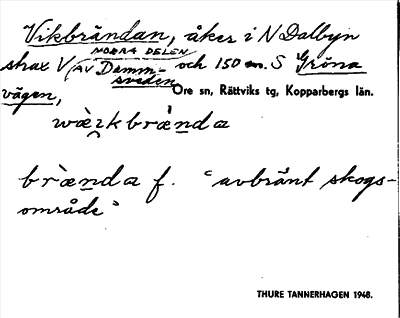 Vikbrändan, åker i N Dalbyn
strax V (NORRA DELEN
AV Damm-
sveden och 150 m. S Gröna
vägen,
Ore sn, Rättviks tg, Kopparbergs län.
wæikbrænda
brænda f. "avbränt skogs-
område"
THURE TANNERHAGEN 1948.